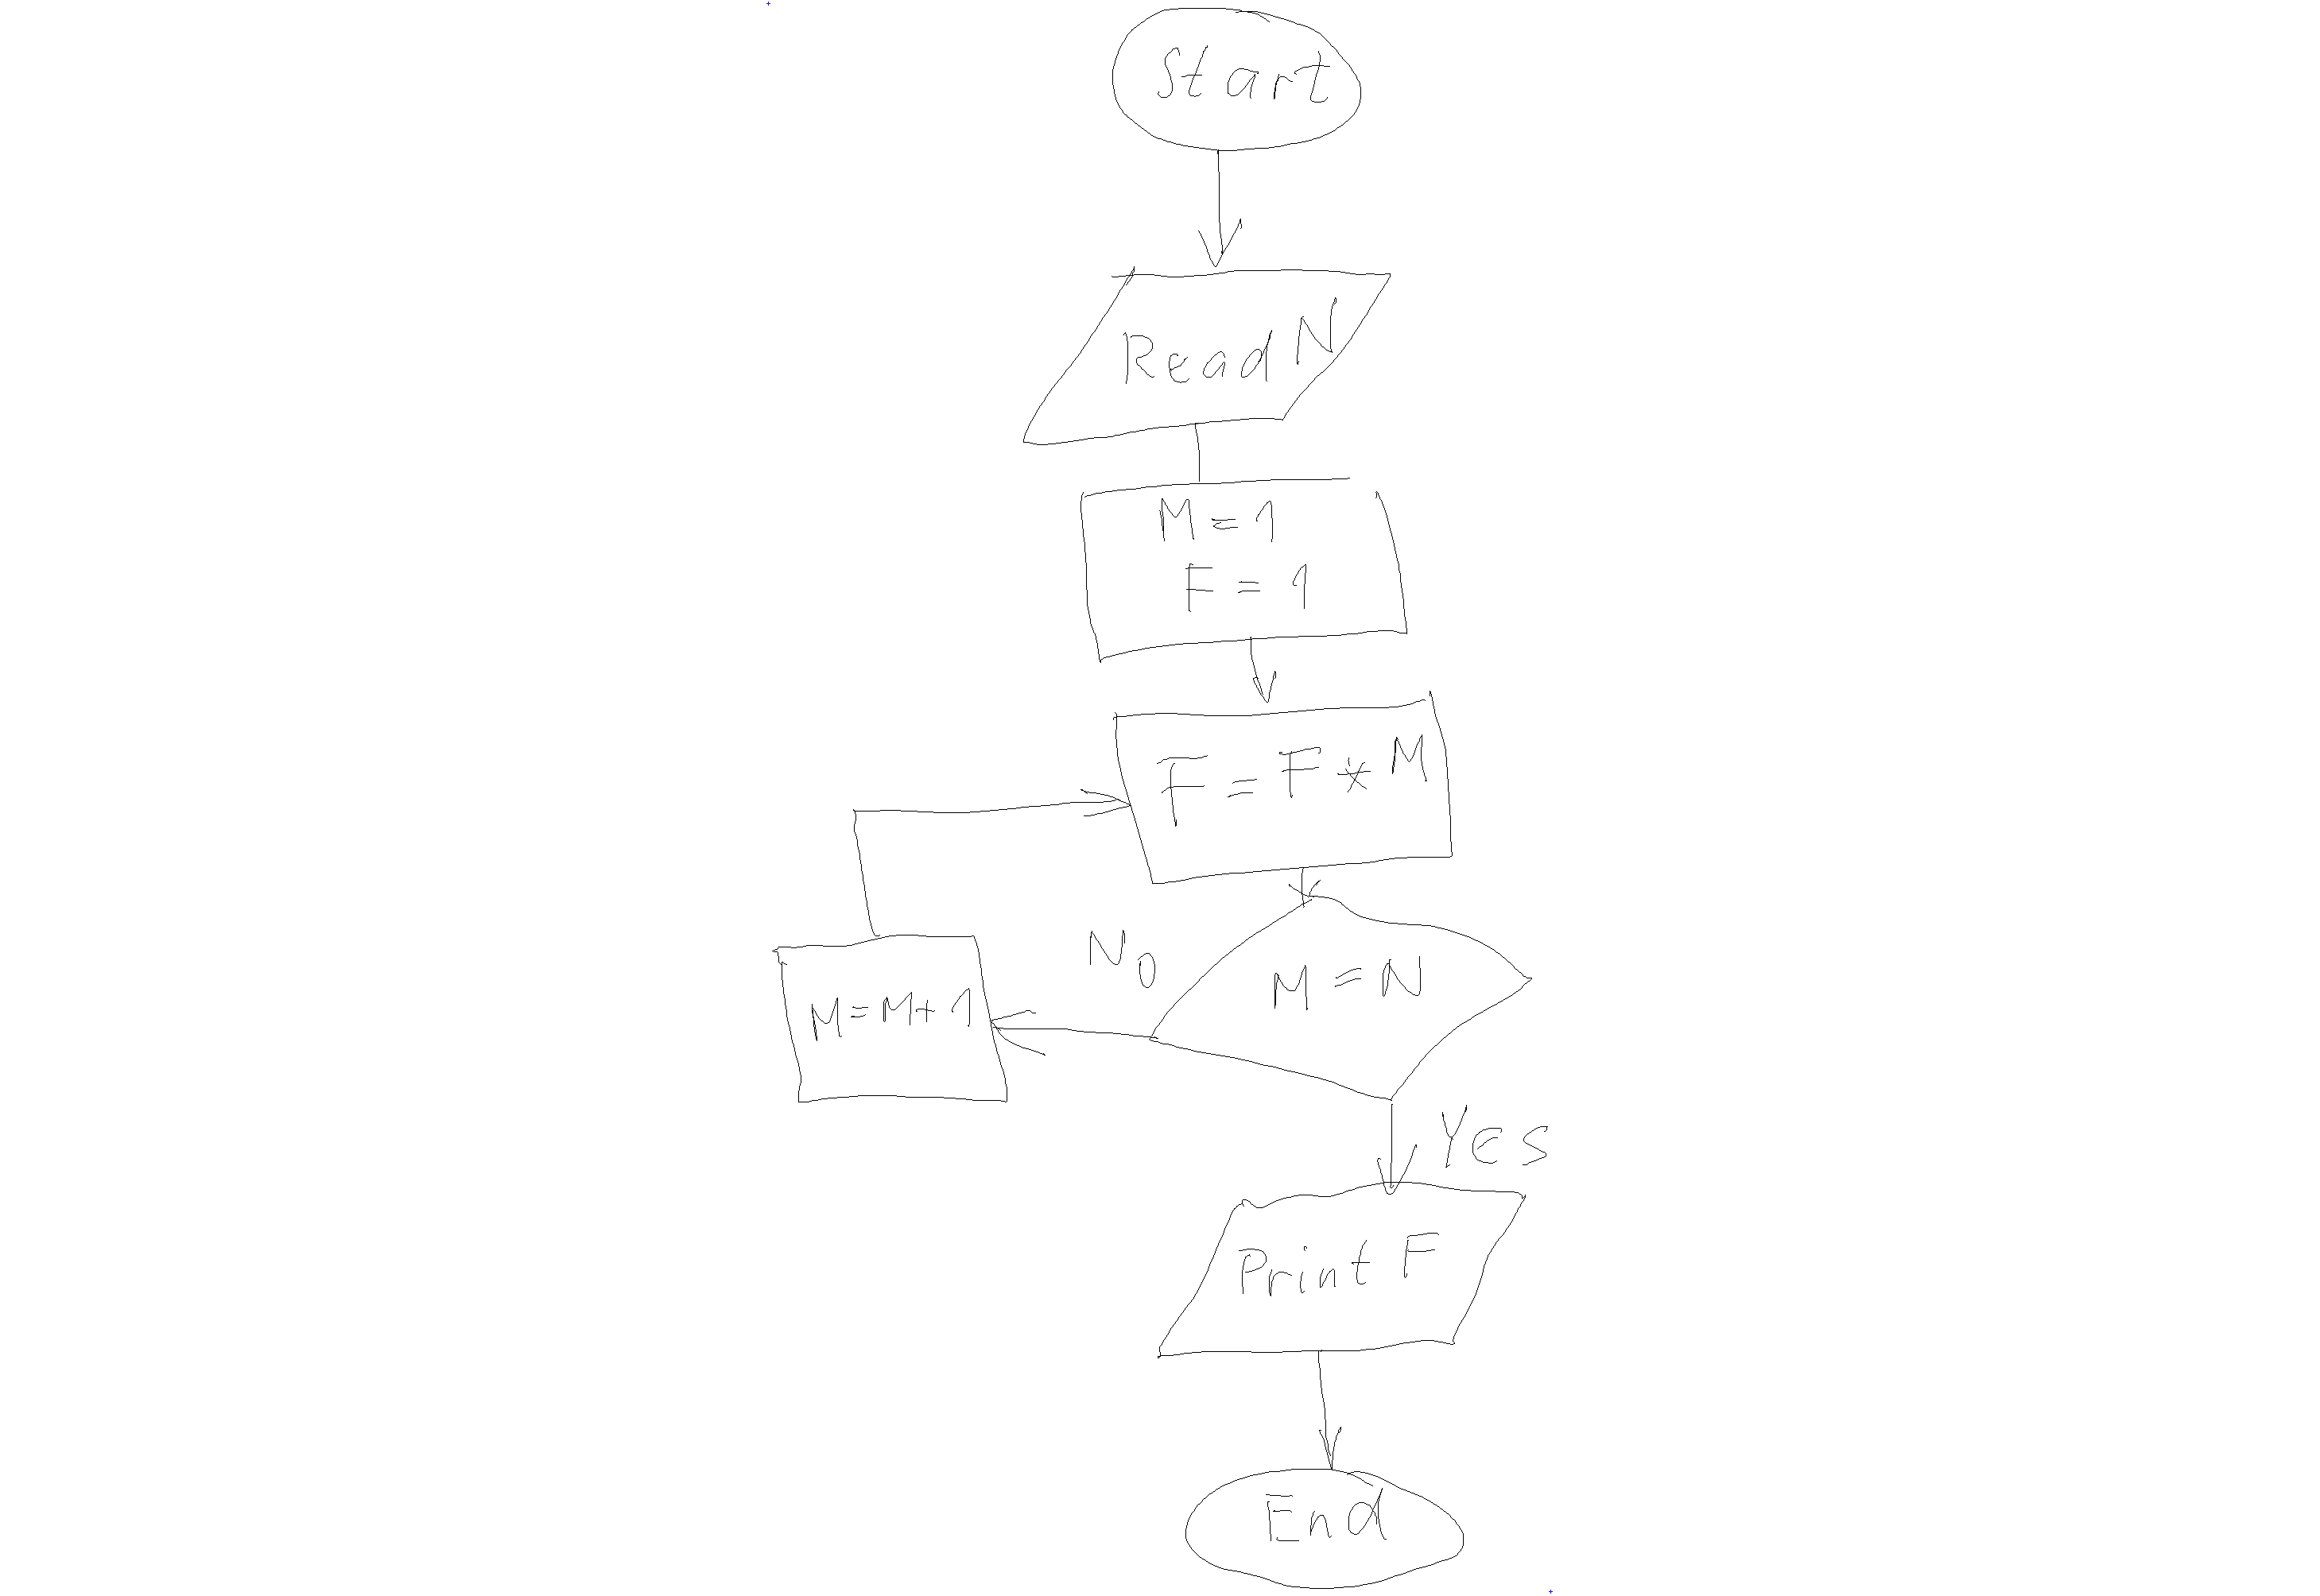 Start
Read N
M=1
F=1
F=F*M
M=N
No
M=M+1
YES
Print F
End